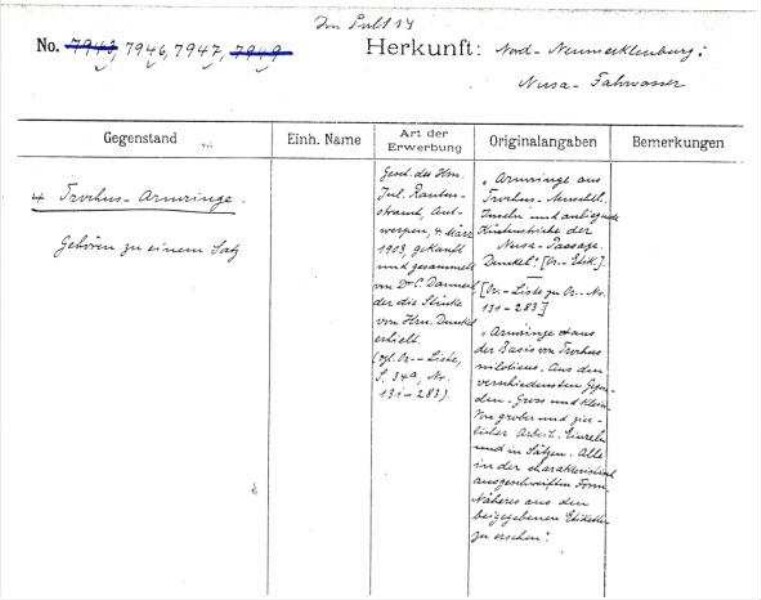 Im Pult 14
No. 7943, 7946, 7947, 7949
Herkunft: Nord-Neumecklenburg:
Nusa-Fahrwasser
Gegenstand
Einh. Name
Art der
Erwerbung
Originalangaben
Bemerkungen
4 Trochus-Armringe.
Gehören zu einem Satz
Gesch. des Hrn.
Jul. Rauten-
strauch, Ant-
werpen, 4. März
1903, gekauft
und gesammelt
von Dr. C. Danneil,
der die Stücke
von Hrn. Dunkel
erhielt.
(vgl. Or.-Liste,
S. 34a, Nr.
131-283).
"Armringe aus
Trochus-Muschel.
Inseln und anliegende
Küstenstriche der
Nusa-Passage.
Dunkel". [Or.-Etik.].
[Or.-Liste zu Or.-Nr.
131-283]
"Armringe aus
der Basis von Trochus
niloticus. Aus den
verschiedensten Gegen-
den. Gross und klein.
Von grober und zier-
licher Arbeit. Einzeln
und in Sätzen. Alle
in der charakteristisch
ausgeschweiften Form.
Näheres aus den
beigegebenen Etiketten
zu ersehen".